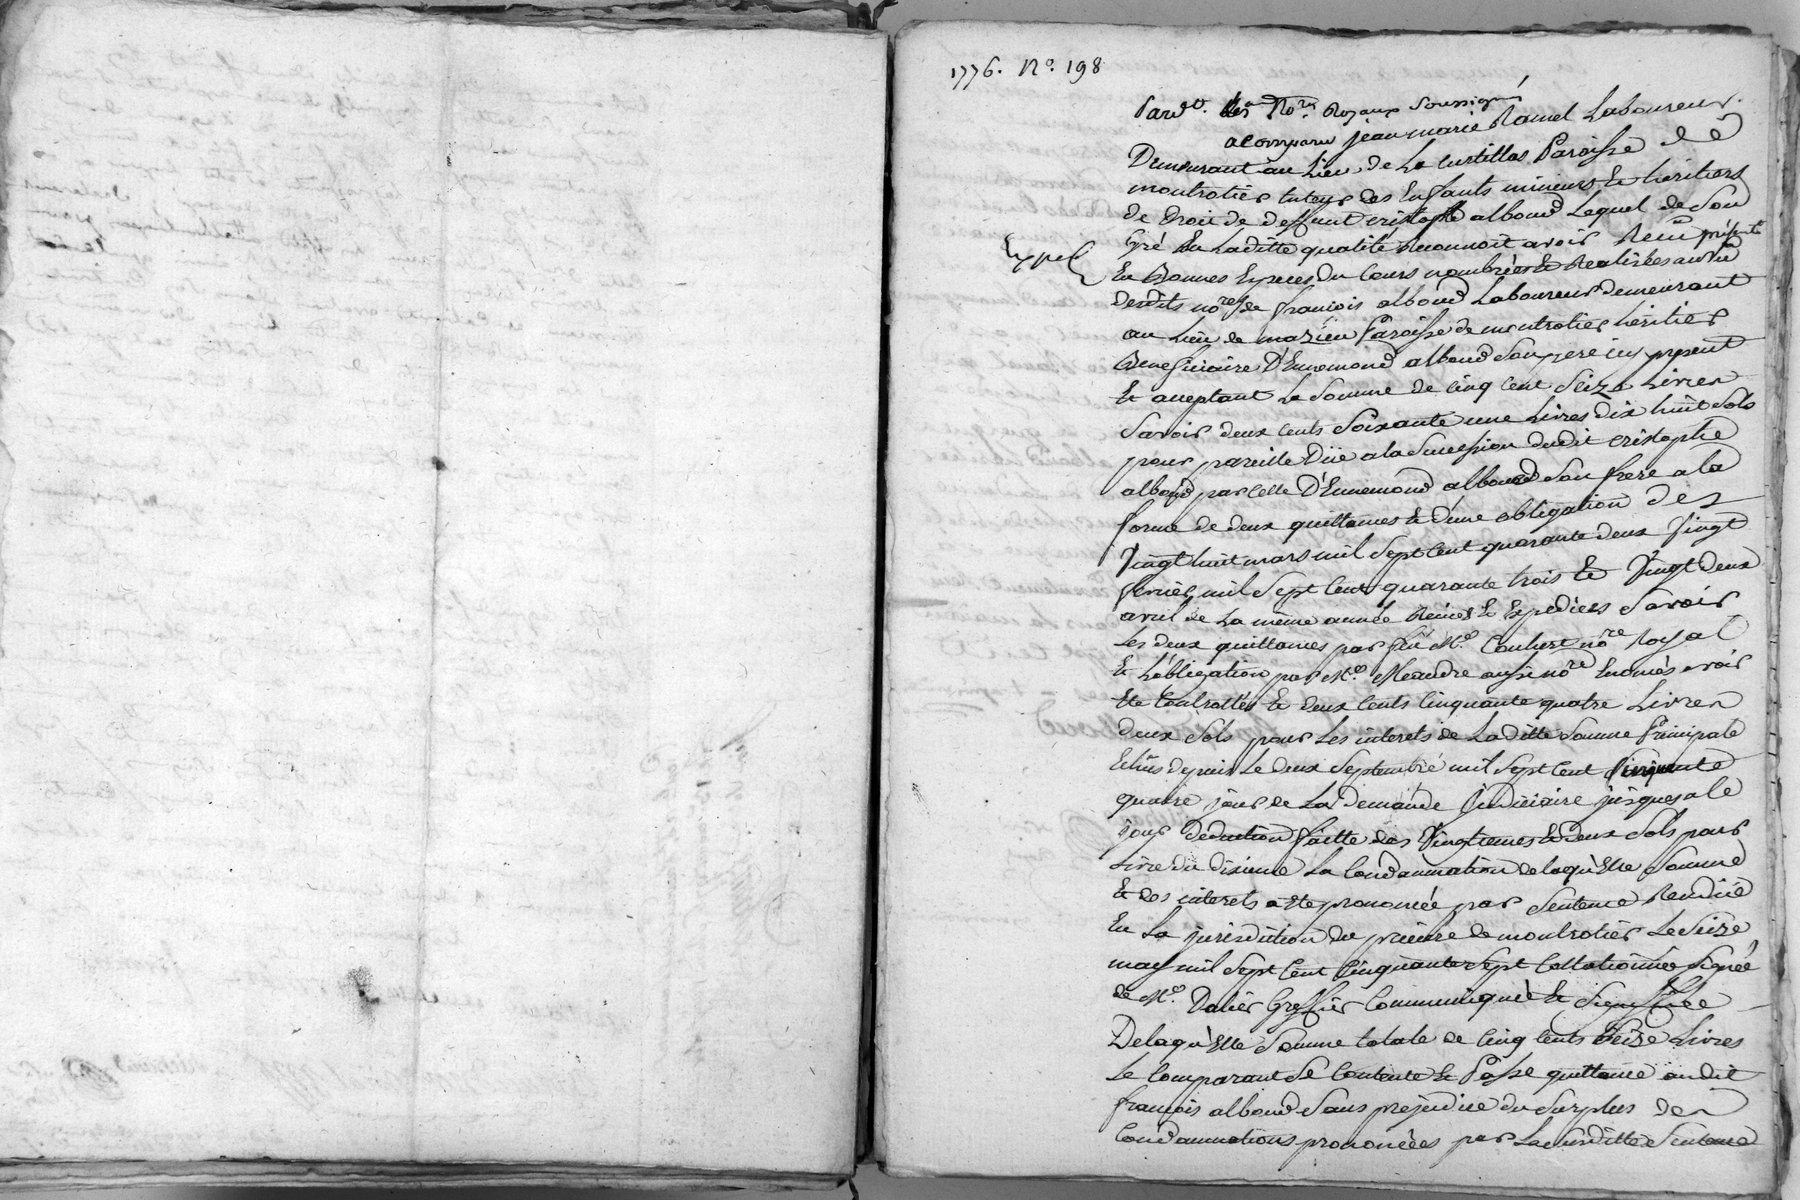 1776. No. 198
Pardt. les Nores Royaux Soussignés
a comparu jean marie Ramel Laboureur
Demeurant au Lieu de La Curtillas Paroisse de
montrotier tuteur des Enfants mineurs & héritiers
de Droit de deffunt cristophe alboud Lequel de Son
Gré En Laditte qualité Reconnoit avoir Recu présentt
Expel
En Bonnes Espèces du Cours nombrées & Realisées au vu
desdits nores de francois alboud Laboureur demeurant
au Lieu de mazieu Paroisse de montrotier héritier
Beneficiaire D'Ennemond alboud Son pere icy present
& acceptant La Somme de Cinq Cent Seize Livres
Savoir deux Cents Soixante une Livres dix huit Sols
pour pareille Düe a la Succession dudit cristophe
alboud par Celle D'Ennemond alboud Son frere a la
forme de deux quittances & d'une obligation des
Vingt huit mars mil Sept Cent quarante deux Vingt
fevrier mil Sept Cent quarante trois & Vingt Deux
avril de La même année Reçües & Expediées Savoir
Les deux quittances par feu Me. Coubert nore Royal
& L'obligation par Me. Meandre aussi nore Enoncés avoir
Ete Controllés & deux Cents Cinquante quatre Livres
deux Sols pour Les interets de La ditte Somme Principale
Echus depuis Le deux Septembre mil Sept Cent Cinquante
quatre jour de La Demande Judiciaire jusques a Ce
jour deduction faitte des Vingtiemes & deux Sols pour
Livre du dixieme La Condamnation de laquelle Somme
& des interets a Ete prononcée par Sentence Rendüe
En La jurisdition du prieuré de montrotier Le Seize
may mil Sept Cent Cinquante Sept Collationnée Signée
de Me. Dalier Greffier Communiquée & Signiffiée
De laquelle Somme totale de Cinq Cents Seize Livres
Le Comparant Se Contente & Passe quittance audit
francois alboud Sans prejudice du Surplus des
Condamnations prononcées par La Susditte Sentence